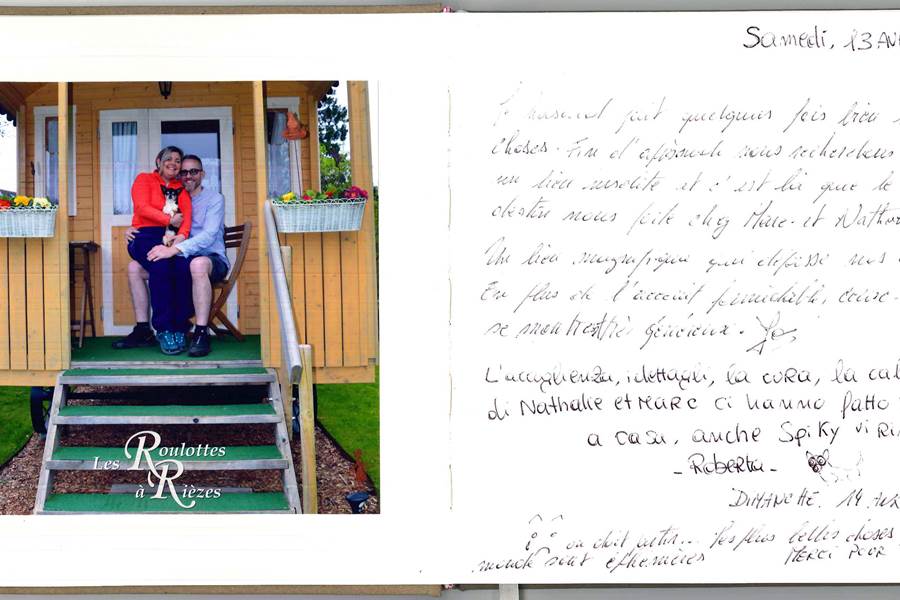 Les Roulottes
à Rièzes
Samedi, 13
Le hasard fait quelques fois bien
choses. Fin d'après midi nous recherchons
un lieu insolite et c'est là que le
destin nous guide chez Marc et Nathalie
Un lieu magnifique qui dépasse nos
En plus de l'accueil formidable,
se montre très généreux.
L'accoglienza, i dettagli, la cura, la
di Nathalie et Marc ci hanno fatto
a casa, anche Spiky vi
- Roberta -
DIMANCHE. 14
on doit partir... Les plus belles choses
monde sont éphémères MERCI POUR